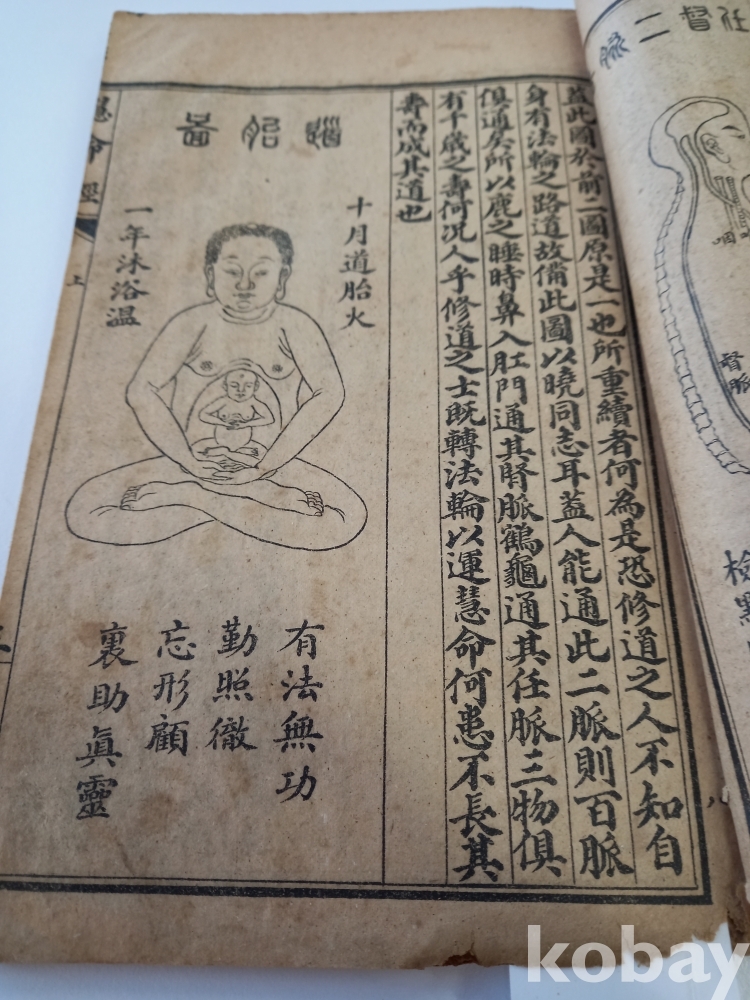 任督二脉
咽
督脈
檢點
蓋此圖於前二圖原是一也所重續者何為是恐修道之人不知自
身有法輪之路道故備此圖以曉同志耳蓋人能通此二脈則百脈
俱通矣所以鹿之睡時鼻入肛門通其腎脈鶴龜通其任脈三物俱
有千歲之壽何況人乎修道之士既轉法輪以運慧命何患不長其
壽而成其道也
道胎圖
十月道胎火
一年沐浴温
有法無功
勤照徹
忘形顧
裏助眞靈
慧命經
上
kobay